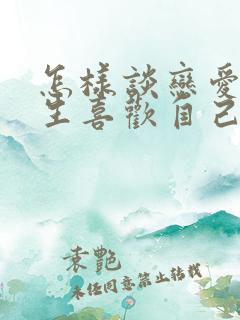 怎樣談戀愛
生喜歡自己
袁艷
未經同意禁止轉載